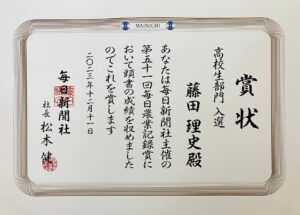 MAINICHI
賞状
高校生部門 入選
藤田 理史殿
あなたは毎日新聞社主催の
第五十一回毎日農業記録賞に
おいて頭書の成績を収めました
のでこれを賞します
二〇二三年十二月十一日
毎日新聞社
社長 松木 健